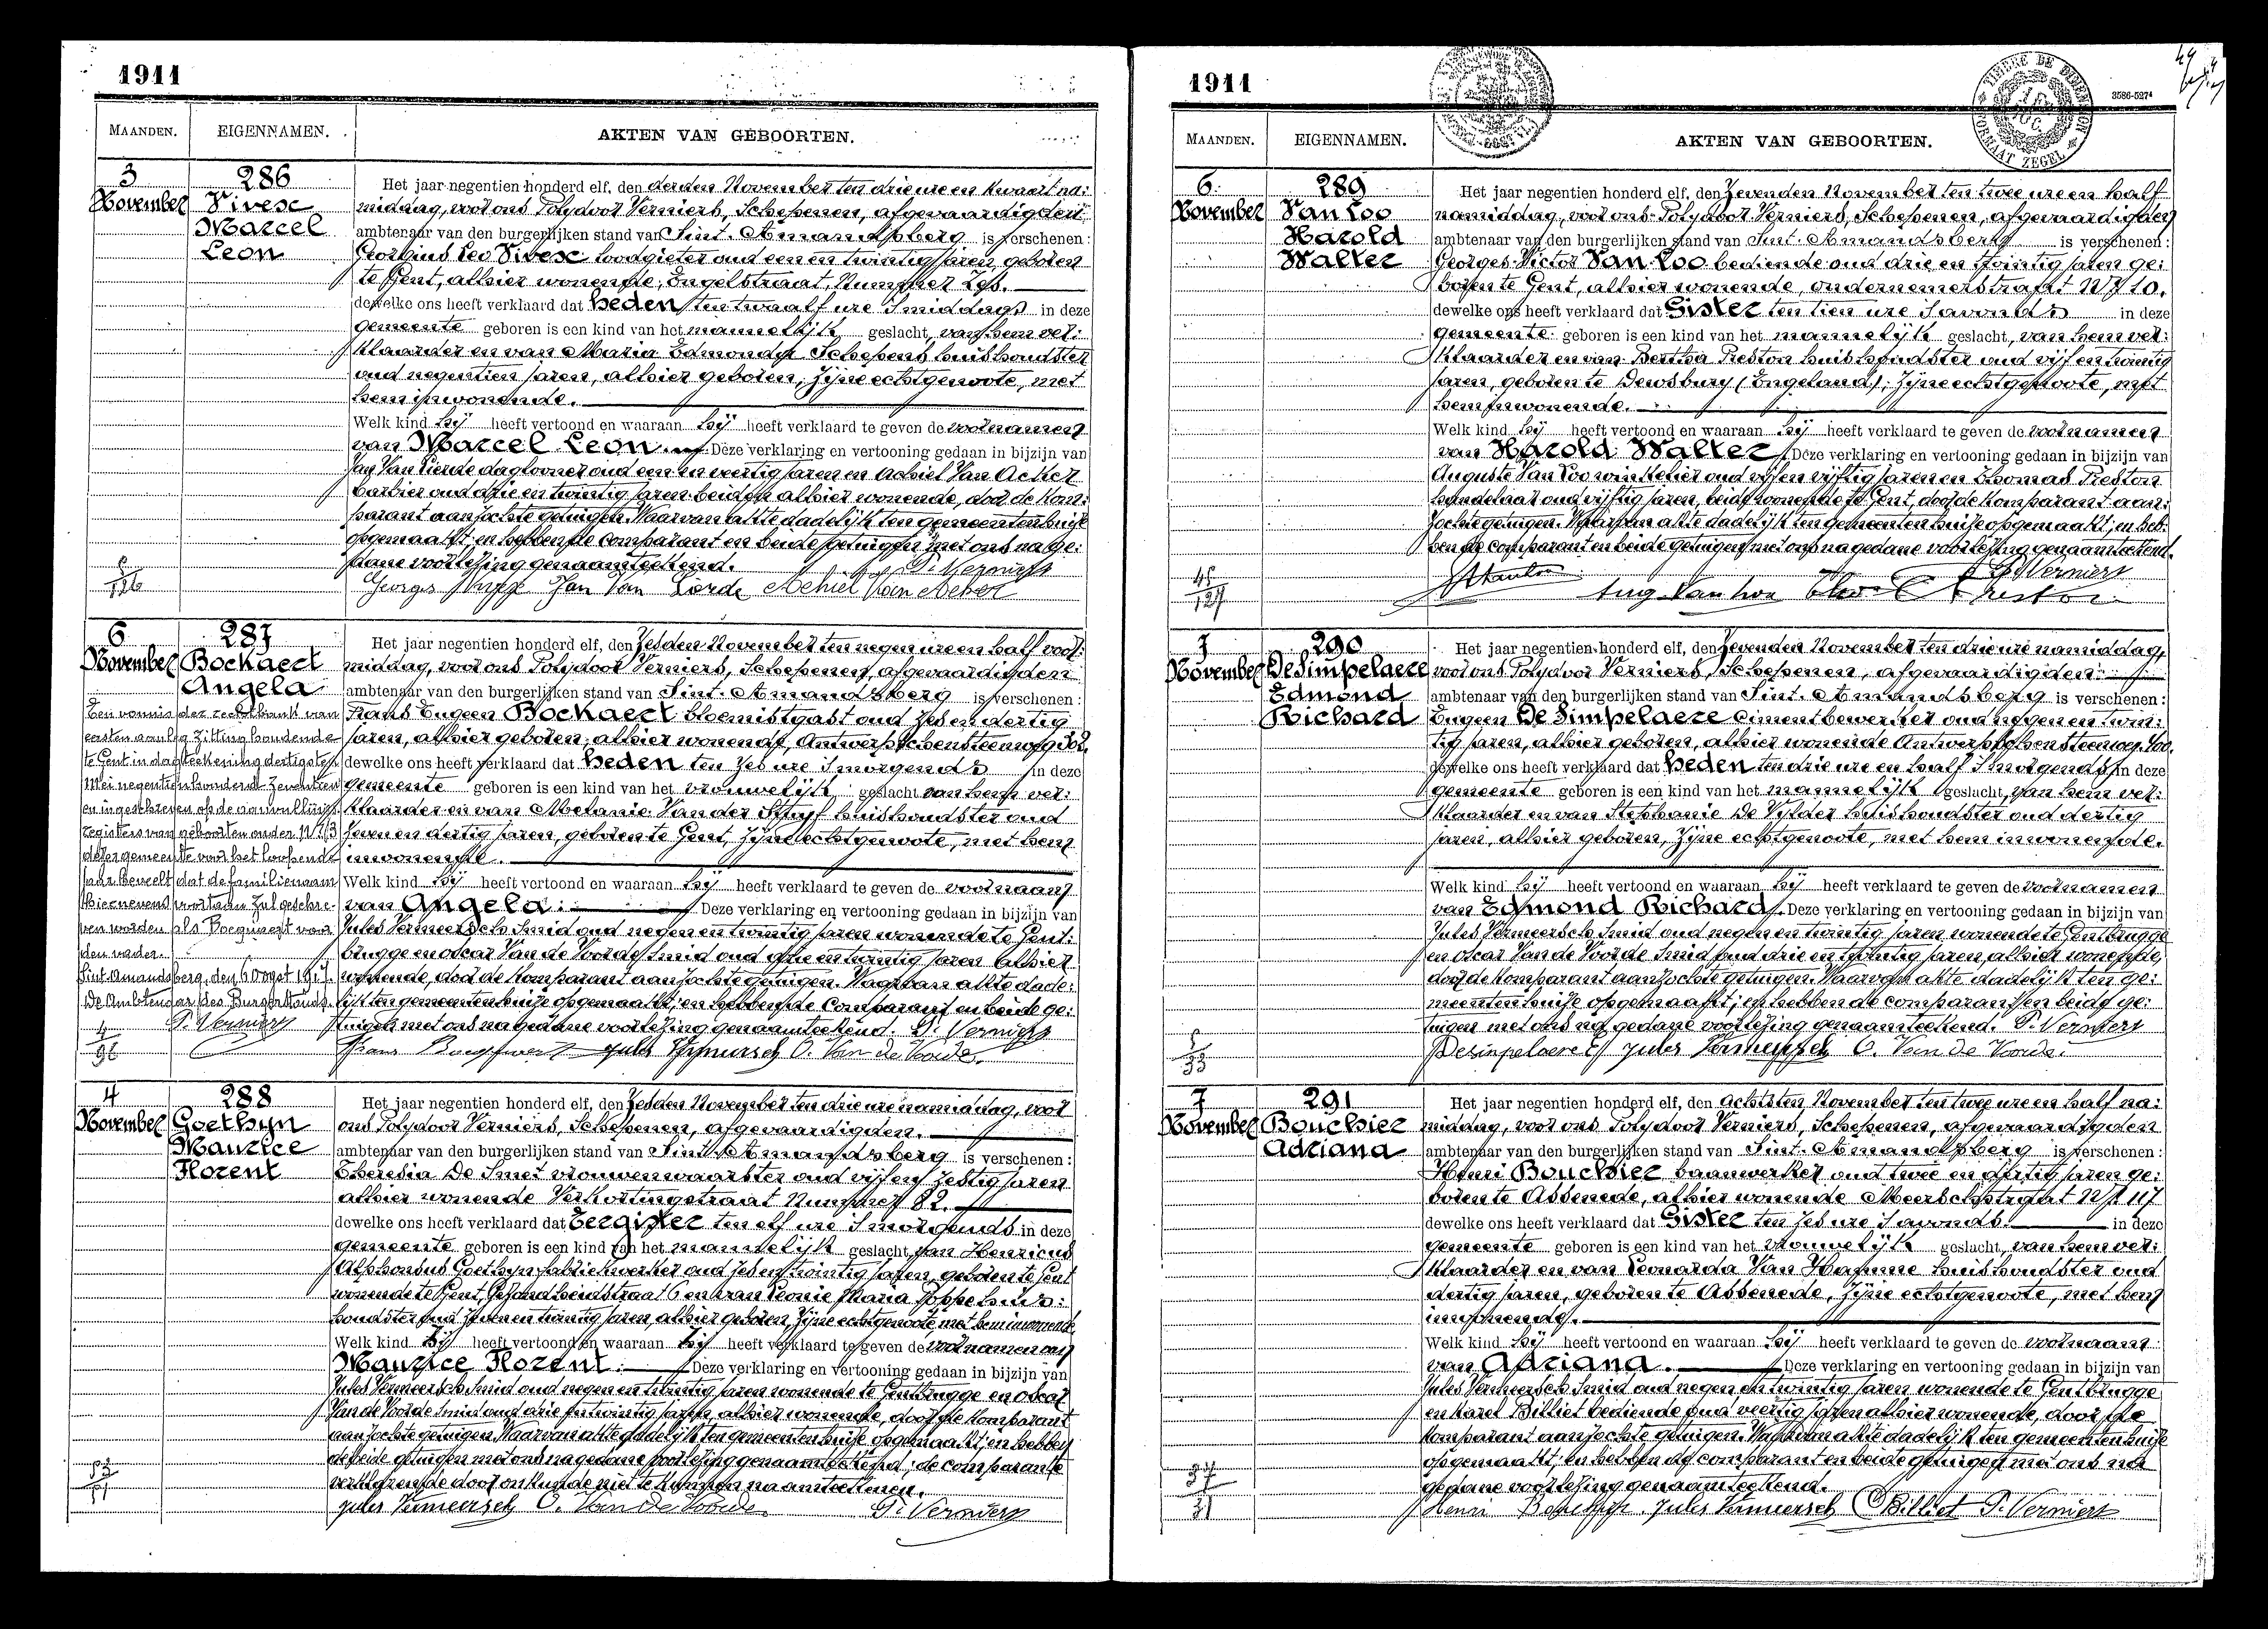 1911
MAANDEN. EIGENNAMEN. AKTEN VAN GEBOORTEN.
3 November
286
Vivese
Marcel
Leon
Het jaar negentien honderd elf, den derden November ten drie ure en kwaart na:
middag, voor ons Polydoor Verniers, Schepenen, afgevaardigden
ambtenaar van den burgerlijken stand van Sint. Amandsberg is verschenen:
Georgius Leo Vivese loodgieter oud een en twintig jaren, geboren
te Gent, alhier wonende, Engelstraat, Nummer
dewelke ons heeft verklaard dat heden ten twaalf ure 's middags in deze
gemeente geboren is een kind van het mannelijk geslacht, van hem ver:
klaarder en van Maria Edmonda Schepens huishoudster
oud negentien jaren, alhier geboren, zijne echtgenoote, met
hem inwonende.
Welk kind hij heeft vertoond en waaraan hij heeft verklaard te geven de voornamen
van Marcel Leon. Deze verklaring en vertooning gedaan in bijzijn van
Jan Van Lierde daglooner oud een en veertig jaren en Achiel Van Acker
barbier oud drie en twintig jaren beiden alhier wonende, door de kom:
parant aanzochte getuigen. Waarvan akte dadelijk ten gemeentenhuize
opgemaakt; en hebben de comparant en beide getuigen met ons na ge:
dane voorlezing genaamteekend. P. Verniers
Georges Jan Van Lierde Achiel Van Acker
6 November
287
Bockaert
Angela
Het jaar negentien honderd elf, den zesden November ten negen ure en half voor:
middag, voor ons Polydoor Verniers, Schepenen, afgevaardigden
ambtenaar van den burgerlijken stand van Sint. Amandsberg is verschenen:
Frans Eugeen Bockaert bloemistgast oud zes en dertig
jaren, alhier geboren, alhier wonende, Antwerpschensteenweg
dewelke ons heeft verklaard dat heden ten zes ure 's morgends in deze
gemeente geboren is een kind van het vrouwelijk geslacht van hem ver:
klaarder en van Melanie Van der Stuyf huishoudster oud
zeven en dertig jaren, geboren te Gent, zijne echtgenoote, met hem
inwonende.
Welk kind hij heeft vertoond en waaraan hij heeft verklaard te geven de voornaam
van Angela. Deze verklaring en vertooning gedaan in bijzijn van
Jules Vermeersch smid oud negen en twintig jaren wonende te Gent:
brugge en Oscar Van de Voorde smid oud drie en twintig jaren alhier
wonende, door de komparant aanzochte getuigen. Waarvan akte dade:
lijk ten gemeentenhuize opgemaakt; en hebben de comparant en beide ge:
tuigen met ons na gedane voorlezing genaamteekend. P. Verniers
Frans Jules Vermeersch O. Van de Voorde.
Een vonnis der rechtbank van
eersten aanleg zitting houdende
te Gent in dagteekening dertigsten
Mei negentien honderd zeventien
en ingeschreven op de aanvullings
registers van geboorten onder Nr 3
dezer gemeente voor het loopende
jaar beveelt dat de familienaam
hiernevens voortaan zal geschre-
ven worden als voor
den vader.
Sint Amandsberg, den 6 Oogst 1917.
De Ambtenaar des Burgerstands,
P. Verniers
4 November
288
Goethyn
Maurice
Florent
Het jaar negentien honderd elf, den zesden November ten drie ure namiddag, voor
ons Polydoor Verniers, Schepenen, afgevaardigden.
ambtenaar van den burgerlijken stand van Sint. Amandsberg is verschenen:
Theresia De Smet vrouwenwaarster oud vijf en zestig jaren
alhier wonende Verkortingstraat Nummer 82.
dewelke ons heeft verklaard dat eergister ten elf ure 's morgends in deze
gemeente geboren is een kind van het mannelijk geslacht, van Henricus
Alphonsus Goethyn fabriekwerker oud zes en twintig jaren, geboren te Gent
wonende te Gent, Gezondheidstraat 6 en van Leonie Maria Joppe huis:
houdster oud zeven en twintig jaren, alhier geboren, zijne echtgenoote, met hem inwonende.
Welk kind zij heeft vertoond en waaraan zij heeft verklaard te geven de voornamen van
Maurice Florent. Deze verklaring en vertooning gedaan in bijzijn van
Jules Vermeersch smid oud negen en twintig jaren wonende te Gentbrugge en Oscar
Van de Voorde smid oud drie en twintig jaren, alhier wonende, door de komparant
aanzochte getuigen. Waarvan akte dadelijk ten gemeentenhuize opgemaakt; en hebben
de beide getuigen met ons na gedane voorlezing genaamteekend; de comparante
verklarende door onkunde niet te kunnen naamteekenen.
Jules Vermeersch O. Van De Voorde. P. Verniers
1911
3586-5274
TIMBRE DE DIMENSION
FORMAAT ZEGEL
MAANDEN. EIGENNAMEN. AKTEN VAN GEBOORTEN.
6 November
289
Van Loo
Harold
Walter
Het jaar negentien honderd elf, den zevenden November ten twee ure en half
namiddag, voor ons Polydoor Verniers, Schepenen, afgevaardigden
ambtenaar van den burgerlijken stand van Sint. Amandsberg is verschenen:
Georges Victor Van Loo bediende oud drie en twintig jaren ge:
boren te Gent, alhier wonende, ondernemerstraat Nr 10.
dewelke ons heeft verklaard dat Gister ten tien ure 's avonds in deze
gemeente geboren is een kind van het mannelijk geslacht, van hem ver:
klaarder en van Bertha Preston huishoudster oud vijf en twintig
jaren, geboren te Dewsbury (Engeland), zijne echtgenoote, met
hem inwonende.
Welk kind hij heeft vertoond en waaraan hij heeft verklaard te geven de voornamen
van Harold Walter. Deze verklaring en vertooning gedaan in bijzijn van
Auguste Van Loo winkelier oud vijf en vijftig jaren en Thomas Preston
handelaar oud vijftig jaren, beide wonende te Gent, door de komparant aan:
zochte getuigen. Waarvan akte dadelijk ten gemeentenhuize opgemaakt; en heb:
ben de comparant en beide getuigen met ons na gedane voorlezing genaamteekend.
P. Verniers
Aug. Van Loo Preston
7 November
290
De Simpelaere
Edmond
Richard
Het jaar negentien honderd elf, den zevenden November ten drie ure namiddag,
voor ons Polydoor Verniers, Schepenen, afgevaardigden
ambtenaar van den burgerlijken stand van Sint. Amandsberg is verschenen:
Eugeen De Simpelaere cimentbewerker oud negen en twin:
tig jaren, alhier geboren, alhier wonende Antwerpschensteenweg
dewelke ons heeft verklaard dat heden ten drie ure en half 's morgends in deze
gemeente geboren is een kind van het mannelijk geslacht, van hem ver:
klaarder en van Stephanie De Vylder huishoudster oud dertig
jaren, alhier geboren, zijne echtgenoote, met hem inwonende.
Welk kind hij heeft vertoond en waaraan hij heeft verklaard te geven de voornamen
van Edmond Richard. Deze verklaring en vertooning gedaan in bijzijn van
Jules Vermeersch smid oud negen en twintig jaren wonende te Gentbrugge
en Oscar Van de Voorde smid oud drie en twintig jaren, alhier wonende,
door de komparant aanzochte getuigen. Waarvan akte dadelijk ten ge:
meentenhuize opgemaakt; en hebben de comparant en beide ge:
tuigen met ons na gedane voorlezing genaamteekend. P. Verniers
Desimpelaere E Jules Vermeersch O. Van de Voorde.
7 November
291
Bouchier
Adriana
Het jaar negentien honderd elf, den achtsten November ten twee ure en half na:
middag, voor ons Polydoor Verniers, Schepenen, afgevaardigden
ambtenaar van den burgerlijken stand van Sint. Amandsberg is verschenen:
Henri Bouchier baanwerker oud twee en dertig jaren ge:
boren te Assenede, alhier wonende Meerschstraat Nr 117
dewelke ons heeft verklaard dat Gister ten zes ure 's avonds. in deze
gemeente geboren is een kind van het vrouwelijk geslacht, van hem ver:
klaarder en van Leonarda Van Hamme huishoudster oud
dertig jaren, geboren te Assenede, zijne echtgenoote, met hem
inwonende.
Welk kind hij heeft vertoond en waaraan hij heeft verklaard te geven de voornaam
van Adriana. Deze verklaring en vertooning gedaan in bijzijn van
Jules Vermeersch smid oud negen en twintig jaren wonende te Gentbrugge
en Karel Billiet bediende oud veertig jaren alhier wonende, door de
komparant aanzochte getuigen. Waarvan akte dadelijk ten gemeentenhuize
opgemaakt; en hebben de comparant en beide getuigen met ons na
gedane voorlezing genaamteekend.
Henri Jules Vermeersch Billiet P. Verniers